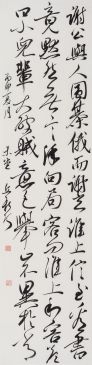 謝公與人圍棊俄而謝玄淮上信至看書
竟默然無言徐向局客問淮上利害答
曰小兒輩大破賊意色舉止不異於常
丙申夏月